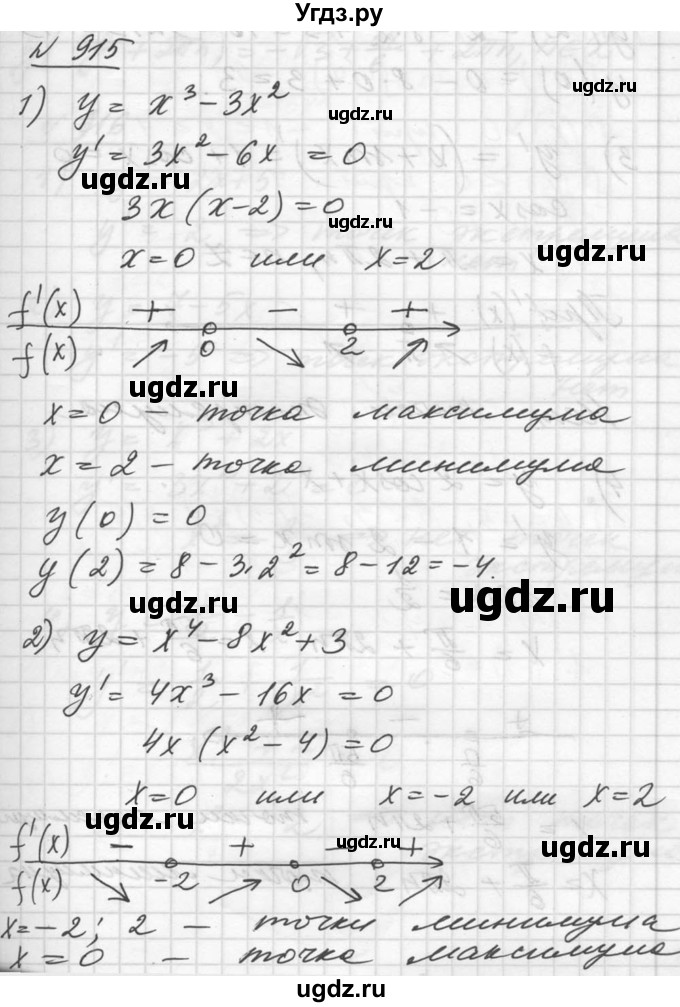 Угдз.ру
N 915
1) y = x³ - 3x²
ugdz.ru
ugdz.ru
y' = 3x² - 6x = 0
ugdz.ru
3x (x-2) = 0
ugdz.ru
x = 0 или x = 2
ugdz.ru
f'(x) + - +
f(x) ↗ 0 ↘ 2 ↗
ugdz.ru
ugdz.ru
x = 0 - точка максимума
x = 2 - точка минимума
ugdz.ru
ugdz.ru
y(0) = 0
y(2) = 8 - 3·2² = 8 - 12 = -4.
ugdz.ru
ugdz.ru
ugdz.ru
2) y = x⁴ - 8x² + 3
y' = 4x³ - 16x = 0
ugdz.ru
ugdz.ru
4x (x² - 4) = 0
x = 0 или x = -2 или x = 2
ugdz.ru
f'(x) - + - +
ugdz.ru
ugdz.ru
f(x) ↘ -2 ↗ 0 ↘ 2 ↗
x = -2; 2 - точки минимума
x = 0 - точка максимума
ugdz.ru